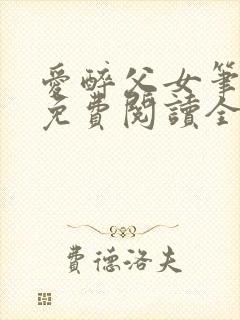 愛醉父女筆
免費閱讀全
費德洛夫